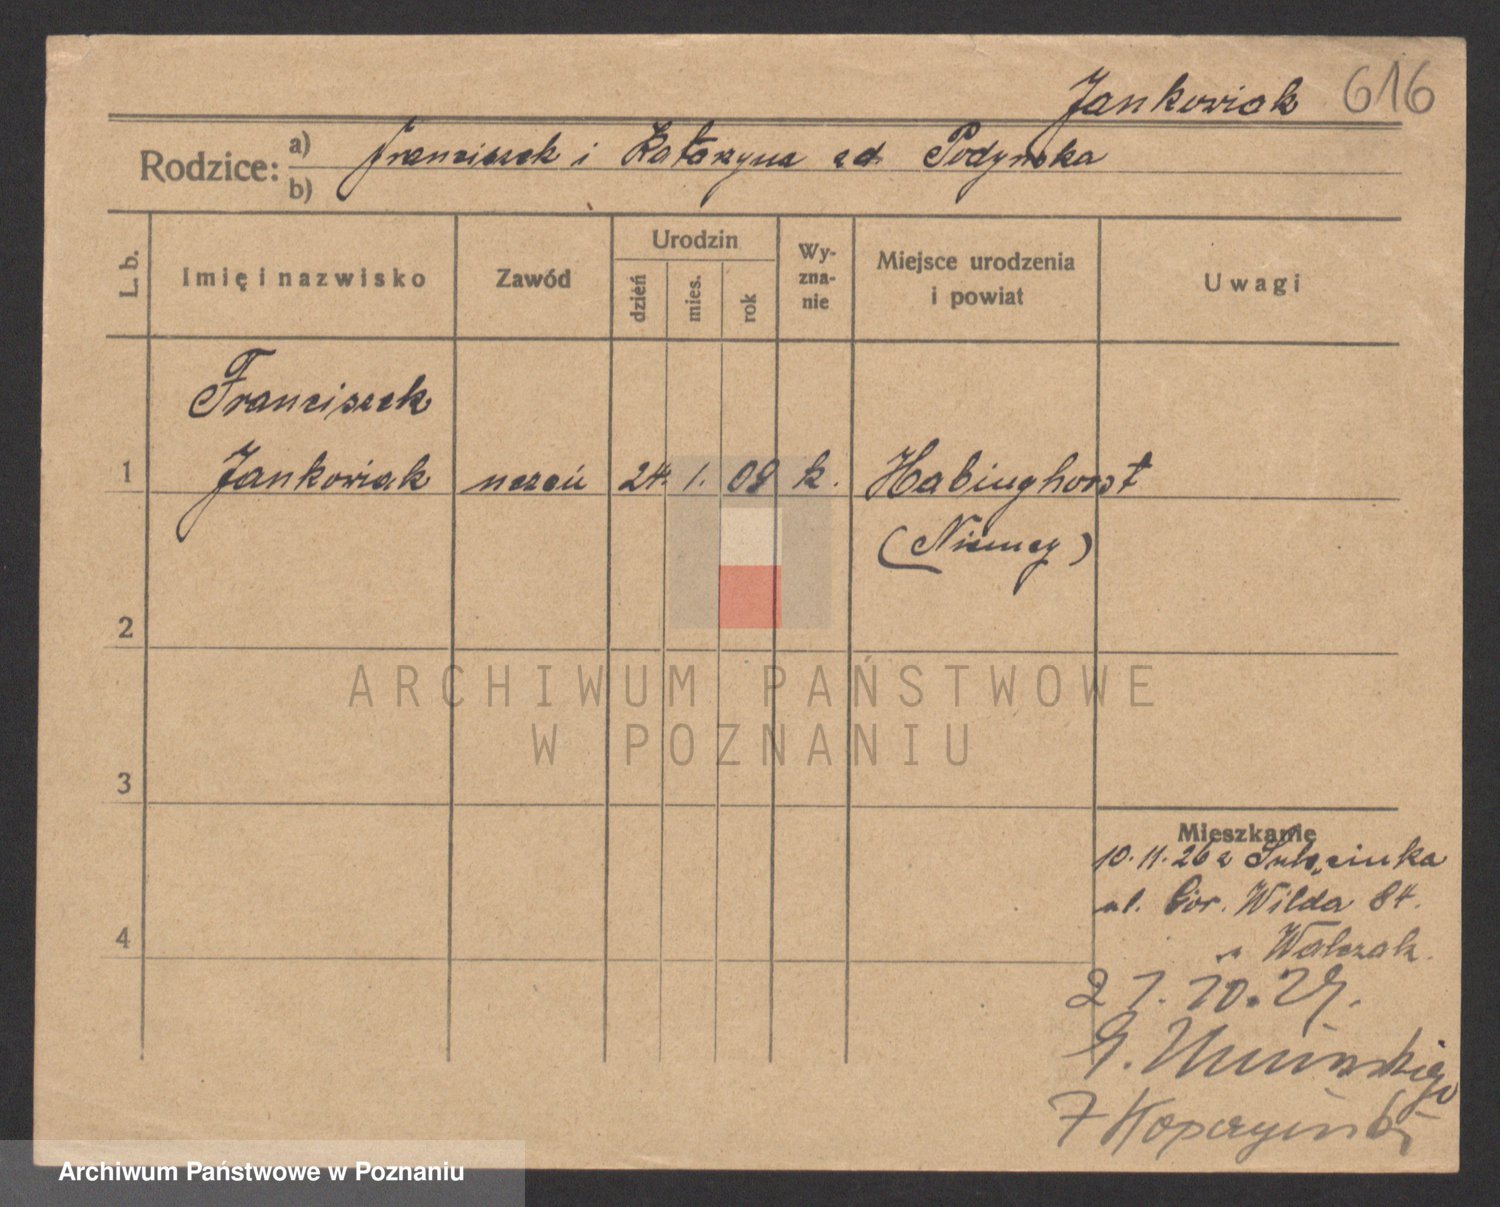 Jankowiak 616
Rodzice: a) Franciszek i Katarzyna zd. Podyńska
b)
L. b. Imię i nazwisko Zawód Urodzin dzień mies. rok Wyznanie Miejsce urodzenia i powiat Uwagi
Franciszek
1 Jankowiak uczeń 24. 1. 09 k. Habinghorst
(Niemcy)
2
ARCHIWUM PAŃSTWOWE
W POZNANIU
3
Mieszkanie
10.11.26 z Sulęcinka
ul. Gór. Wilda 84.
4
u Walczak.
21.10.27.
G. Umińskiego
7 Kopczyński
Archiwum Państwowe w Poznaniu